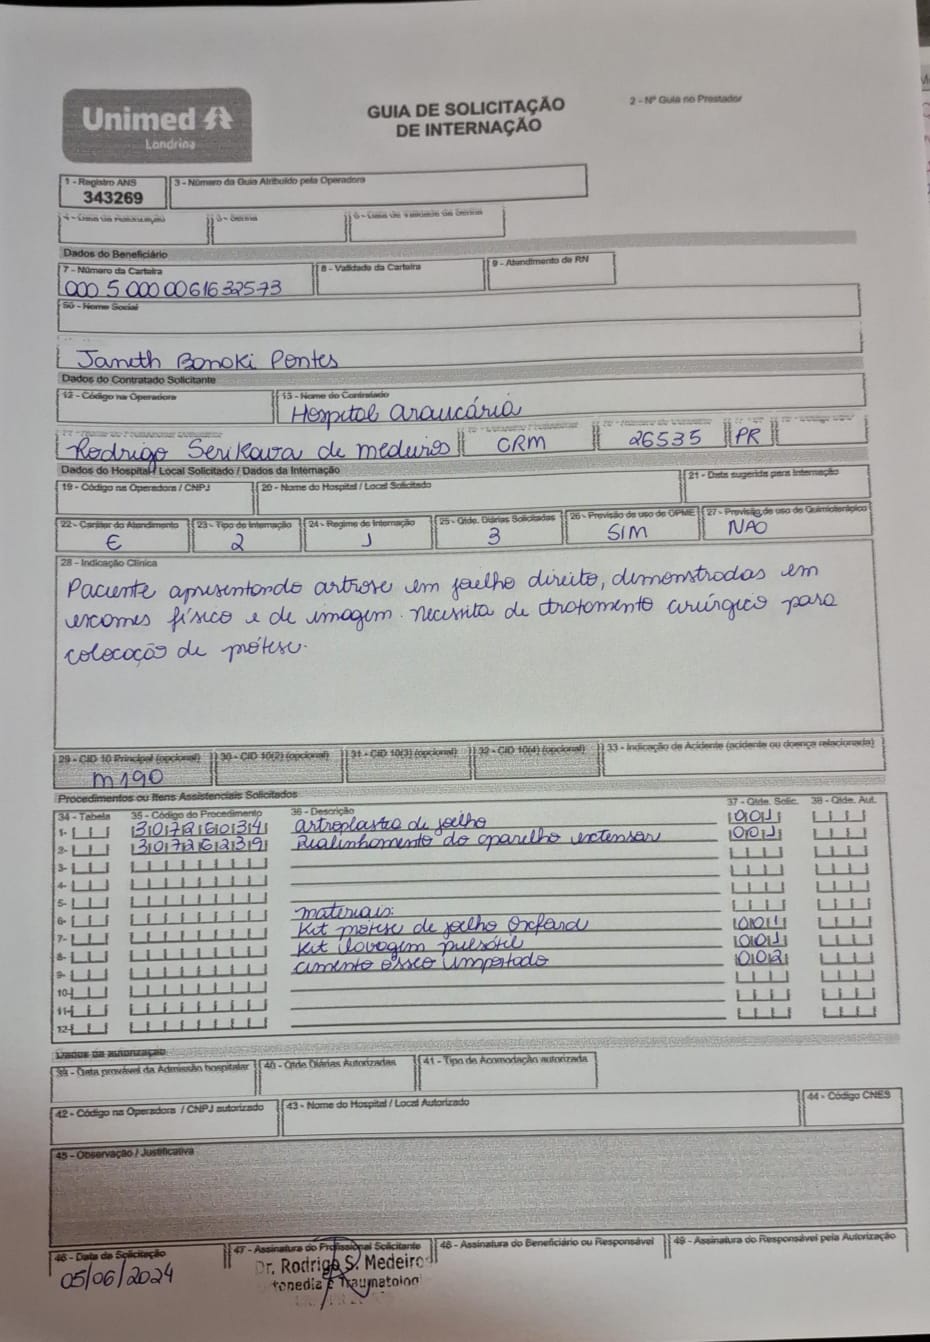 Unimed
Londrina
GUIA DE SOLICITAÇÃO
DE INTERNAÇÃO
2 - Nº Guia no Prestador
1 - Registro ANS
343269
3 - Número da Guia Atribuído pela Operadora
Dados do Beneficiário
7 - Número da Carteira
000 5 000 0061632573
8 - Validade da Carteira
9 - Atendimento de RN
50 - Nome Social
Janeth Bonoki Pontes
Dados do Contratado Solicitante
12 - Código na Operadora
13 - Nome do Contratado
Hospital Araucária
Rodrigo Serikawa de medeiros
CRM
26535
PR
Dados do Hospital / Local Solicitado / Dados da Internação
19 - Código na Operadora / CNPJ
20 - Nome do Hospital / Local Solicitado
21 - Data sugerida para internação
22 - Caráter do Atendimento
E
23 - Tipo de Internação
2
24 - Regime de Internação
1
25 - Qtde. Diárias Solicitadas
3
26 - Previsão de uso de OPME
SIM
27 - Previsão de uso de Quimioterápico
NAO
28 - Indicação Clínica
Paciente apresentando artrose em joelho direito, demonstradas em
exames físico e de imagem. necessita de tratamento cirúrgico para
colocação de prótese.
29 - CID 10 Principal (opcional)
m190
30 - CID 10(2) (opcional)
31 - CID 10(3) (opcional)
32 - CID 10(4) (opcional)
33 - Indicação de Acidente (acidente ou doença relacionada)
Procedimentos ou Itens Assistenciais Solicitados
34 - Tabela
35 - Código do Procedimento
36 - Descrição
37 - Qtde. Solic.
38 - Qtde. Aut.
1- 30726034 artroplastia de joelho 001
2- 30726239 Realinhamento do aparelho extensor 001
3-
4-
5-
materiais:
6- Kit prótese de joelho Oxford 001
7- Kit lavagem pulsátil 001
8- cimento ósseo importado 002
9-
10-
11-
12-
Dados da autorização
39 - Data provável da Admissão hospitalar
40 - Qtde Diárias Autorizadas
41 - Tipo de Acomodação autorizada
42 - Código na Operadora / CNPJ autorizado
43 - Nome do Hospital / Local Autorizado
44 - Código CNES
45 - Observação / Justificativa
46 - Data da Solicitação
05/06/2024
47 - Assinatura do Profissional Solicitante
Dr. Rodrigo S. Medeiro
48 - Assinatura do Beneficiário ou Responsável
49 - Assinatura do Responsável pela Autorização